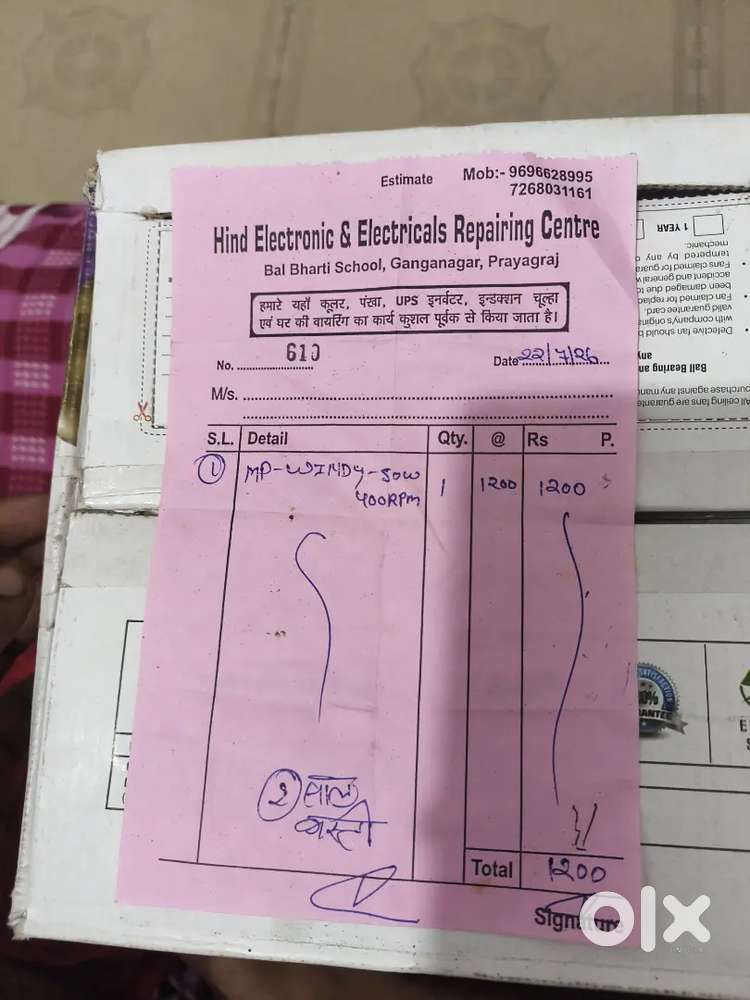 Estimate Mob:- 9696628995
7268031161
Hind Electronic & Electricals Repairing Centre
Bal Bharti School, Ganganagar, Prayagraj
हमारे यहाँ कूलर, पंखा, UPS इनर्वटर, इन्डक्शन चूल्हा
एवं घर की वायरिंग का कार्य कुशल पूर्वक से किया जाता है।
No. 610 Date 22/7/26
M/s.
S.L. Detail Qty. @ Rs P.
1 MP-WINDY-50W 1 1200 1200
400RPM
2 साल
Total 1200
Signature
1 YEAR
mechanic.
tempered by any
Fans claimed for guarantee
accident and general
been damaged due to
Fans claimed for
valid guarantee card.
with company's original
Defective fan should be
any
Ball Bearing an
purchase against any
All ceiling fans are
SATISFACTION
olx